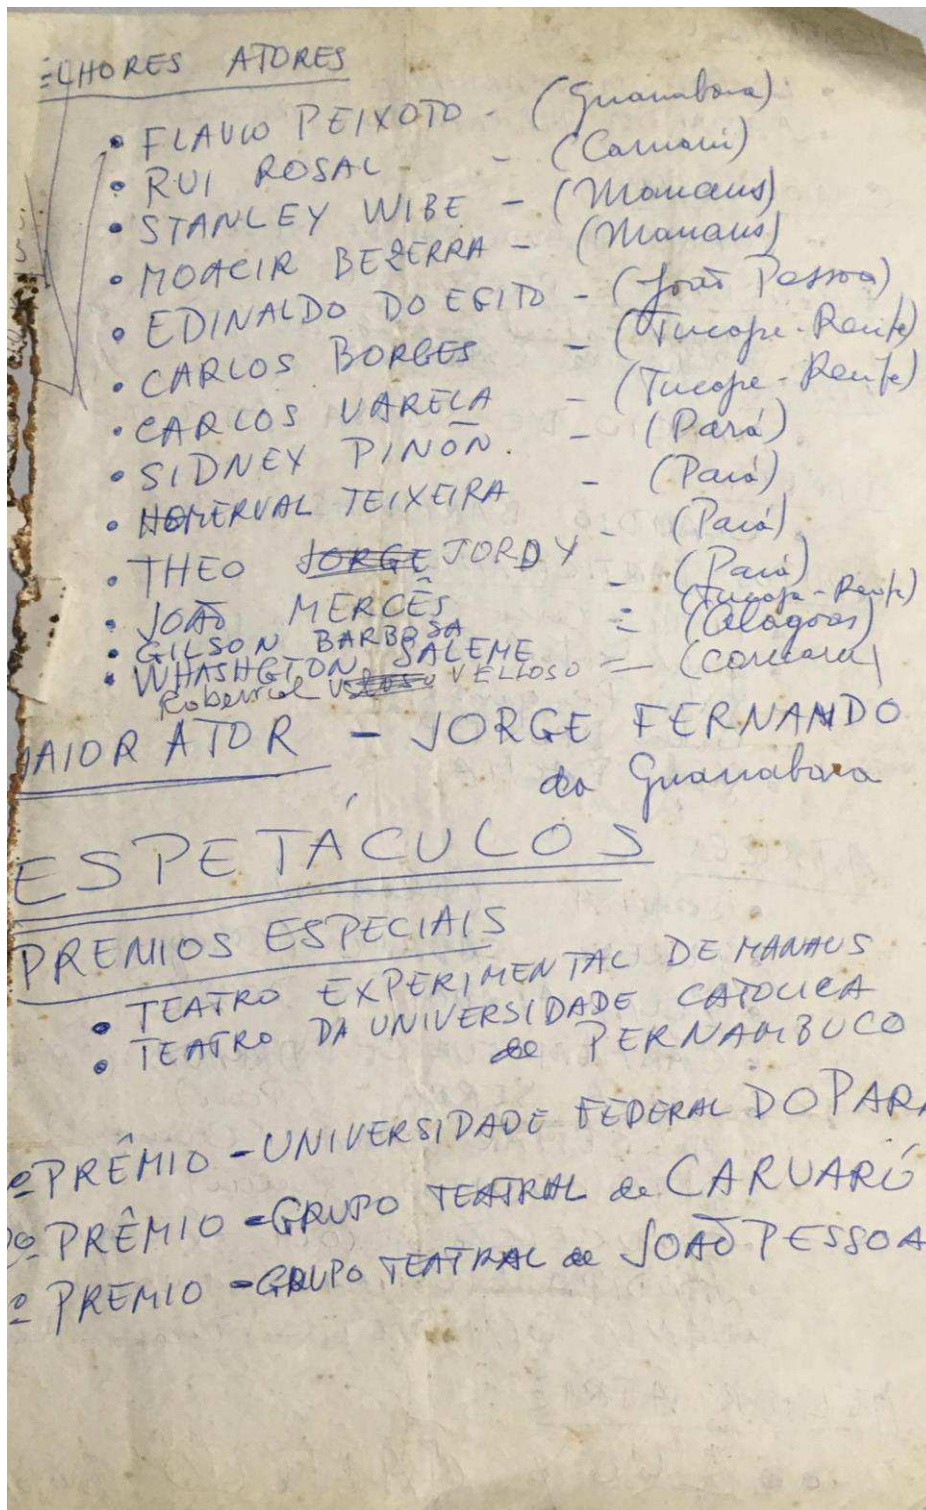 ELHORES ATORES
• FLAVIO PEIXOTO - (Guanabara)
• RUI ROSAL - (Caruaru)
• STANLEY WIBE - (Manaus)
• MOACIR BEZERRA - (Manaus)
• EDINALDO DO EGITO - (João Pessoa)
• CARLOS BORGES - (Tucape - Recife)
• CARLOS VARELA - (Tucape - Recife)
• SIDNEY PIÑÓN. - (Pará)
• HOMERVAL TEIXEIRA - (Pará)
• THEO JORGE JORDY - (Pará)
• JOÃO MERCÊS - (Pará)
• GILSON BARBOSA - (Tucape - Recife)
• WHASHGTON SALEME - (Alagoas)
VELLOSO - (Caruaru)
MAIOR ATOR - JORGE FERNANDO
da Guanabara
ESPETÁCULOS
PREMIOS ESPECIAIS
• TEATRO EXPERIMENTAL DE MANAUS
• TEATRO DA UNIVERSIDADE CATOLICA
de PERNAMBUCO
º PRÊMIO - UNIVERSIDADE FEDERAL DO PARÁ
º PRÊMIO - GRUPO TEATRAL de CARUARÚ
º PREMIO - GRUPO TEATRAL de JOÃO PESSOA